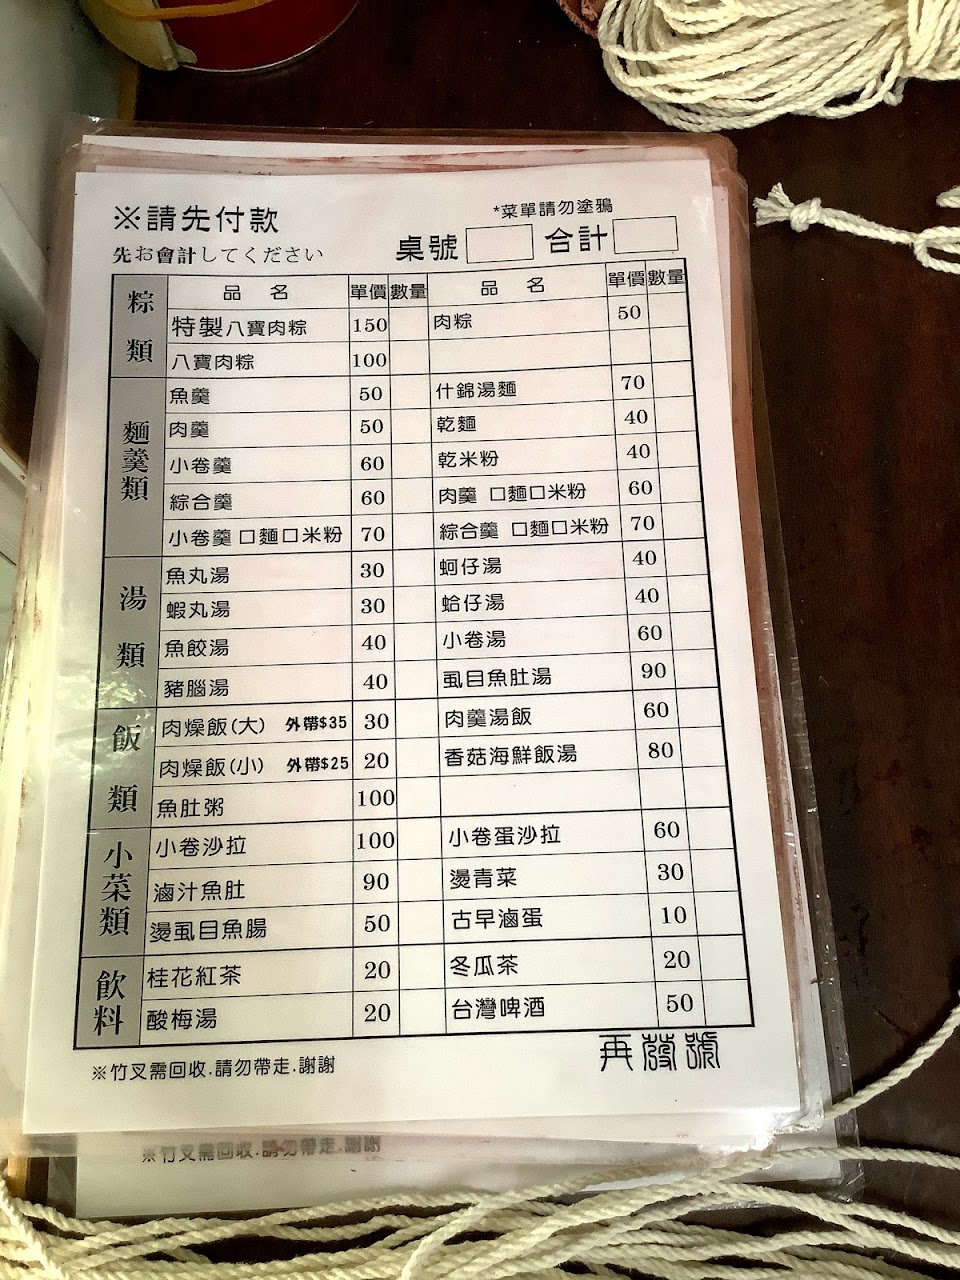 ※請先付款
*菜單請勿塗鴉
先お會計してください
桌號 合計
粽類
品 名 單價 數量 品 名 單價 數量
特製八寶肉粽 150 肉粽 50
八寶肉粽 100
麵羹類
魚羹 50 什錦湯麵 70
肉羹 50 乾麵 40
小卷羹 60 乾米粉 40
綜合羹 60 肉羹 □麵□米粉 60
小卷羹 □麵□米粉 70 綜合羹 □麵□米粉 70
湯類
魚丸湯 30 蚵仔湯 40
蝦丸湯 30 蛤仔湯 40
魚餃湯 40 小卷湯 60
豬腦湯 40 虱目魚肚湯 90
飯類
肉燥飯(大) 外帶$35 30 肉羹湯飯 60
肉燥飯(小) 外帶$25 20 香菇海鮮飯湯 80
魚肚粥 100
小菜類
小卷沙拉 100 小卷蛋沙拉 60
滷汁魚肚 90 燙青菜 30
燙虱目魚腸 50 古早滷蛋 10
飲料
桂花紅茶 20 冬瓜茶 20
酸梅湯 20 台灣啤酒 50
※竹叉需回收.請勿帶走.謝謝
再發號
※竹叉需回收.請勿帶走.謝謝